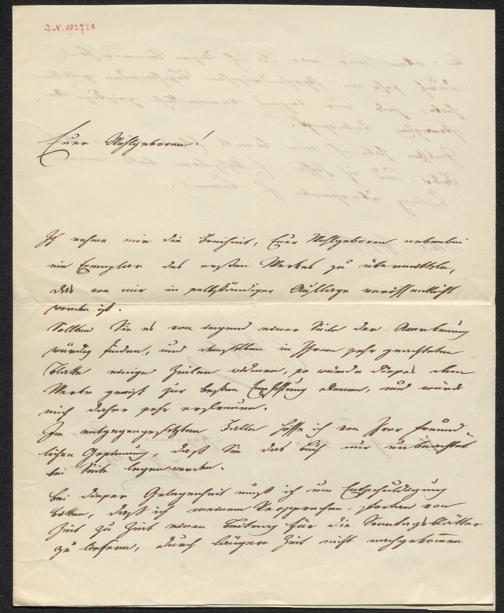 I.N. 102728
Euer Wohlgeboren!
Ich nehme mir die Freiheit, Euer Wohlgeboren nebenbei
ein Exemplar des ersten Werkes zu übermitteln,
das von mir in selbständiger Auflage veröffentlicht
worden ist.
Sollten Sie es von irgend einer Seite der Anerkennung
würdig finden, und demselben in Ihrem sehr geachteten
Blatte einige Zeilen widmen, so würde dieses dem
Werke gewiß zur besten Empfehlung dienen, und würde
mich daher sehr erfreuen.
Im entgegengesetzten Falle hoffe ich von Ihrer freund-
lichen Gesinnung, daß Sie das Buch nur unbeachtet
bei Seite legen werden.
Bei dieser Gelegenheit muß ich um Entschuldigung
bitten, daß ich meinem Versprechen, von
Zeit zu Zeit einen Beitrag für die Sonntagsblätter
zu liefern, durch längere Zeit nicht nachgekommen